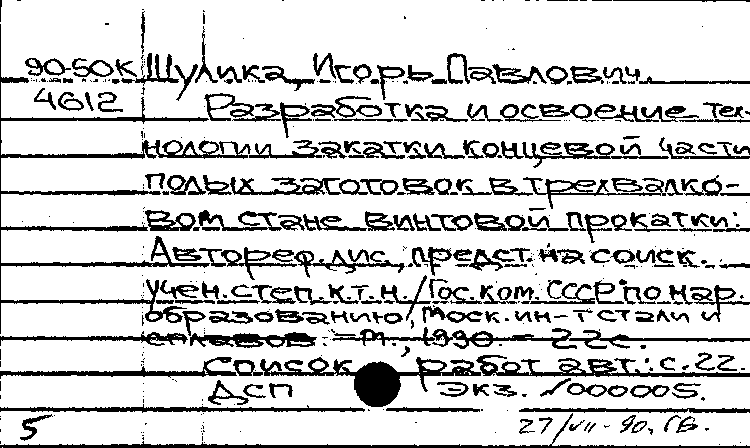 90-50К Шулика, Игорь Павлович.
4612 Разработка и освоение тех-
нологии закатки концевой части
полых заготовок в трехвалко-
вом стане винтовой прокатки:
Автореф. дис., предст. на соиск.
учен. степ. к.т.н. / Гос. ком. СССР по нар.
образованию, Моск. ин-т стали и
сплавов. - М., 1990. - 22с.
Список работ авт.: с. 22.
ДСП экз. №000005.
5 27/VII-90.